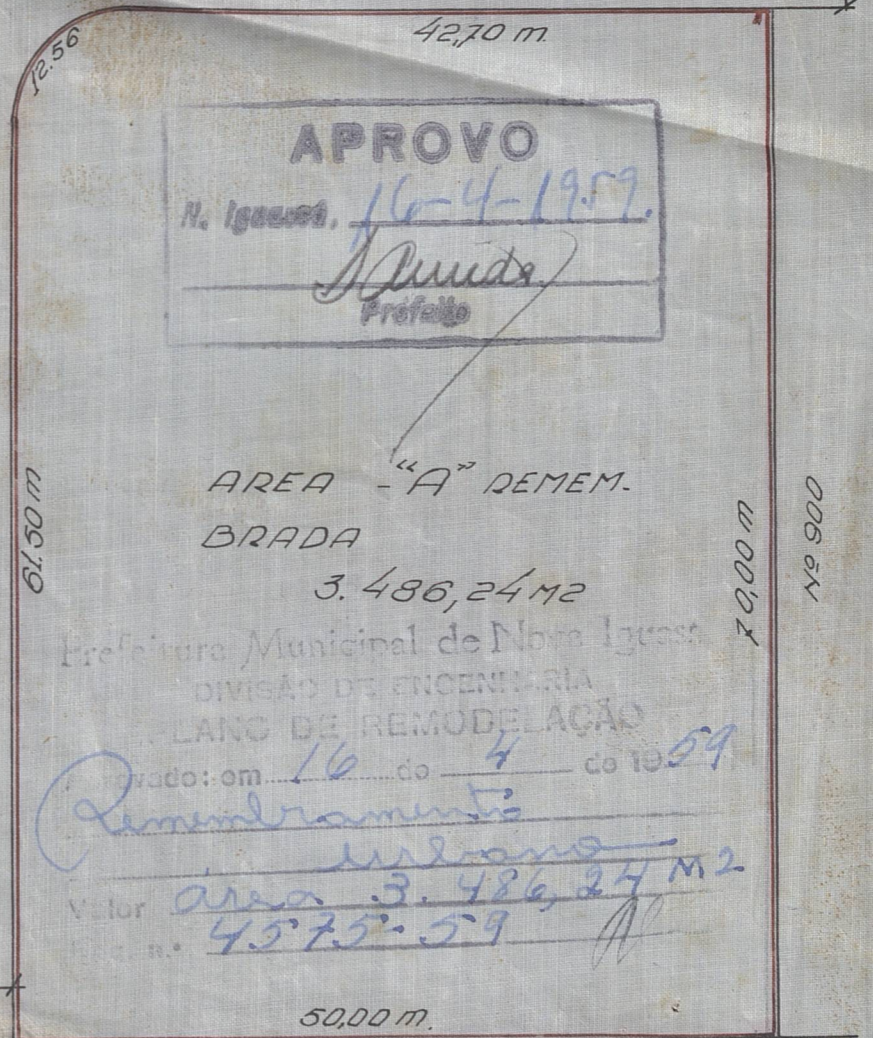 42,70 m.
12.56
APROVO
N. Iguassú, 16-4-1959.
Prefeito
61.50 m
AREA - "A" REMEM-
BRADA
3.486,24 M2
70,00 m
Nº 900
Prefeitura Municipal de Nova Iguassú
DIVISÃO DE ENGENHARIA
PLANO DE REMODELAÇÃO
Aprovado: em 16 de 4 de 1959
Remembramento
urbano
Valor área 3.486,24 M2
n.º 4575-59
50,00 m.